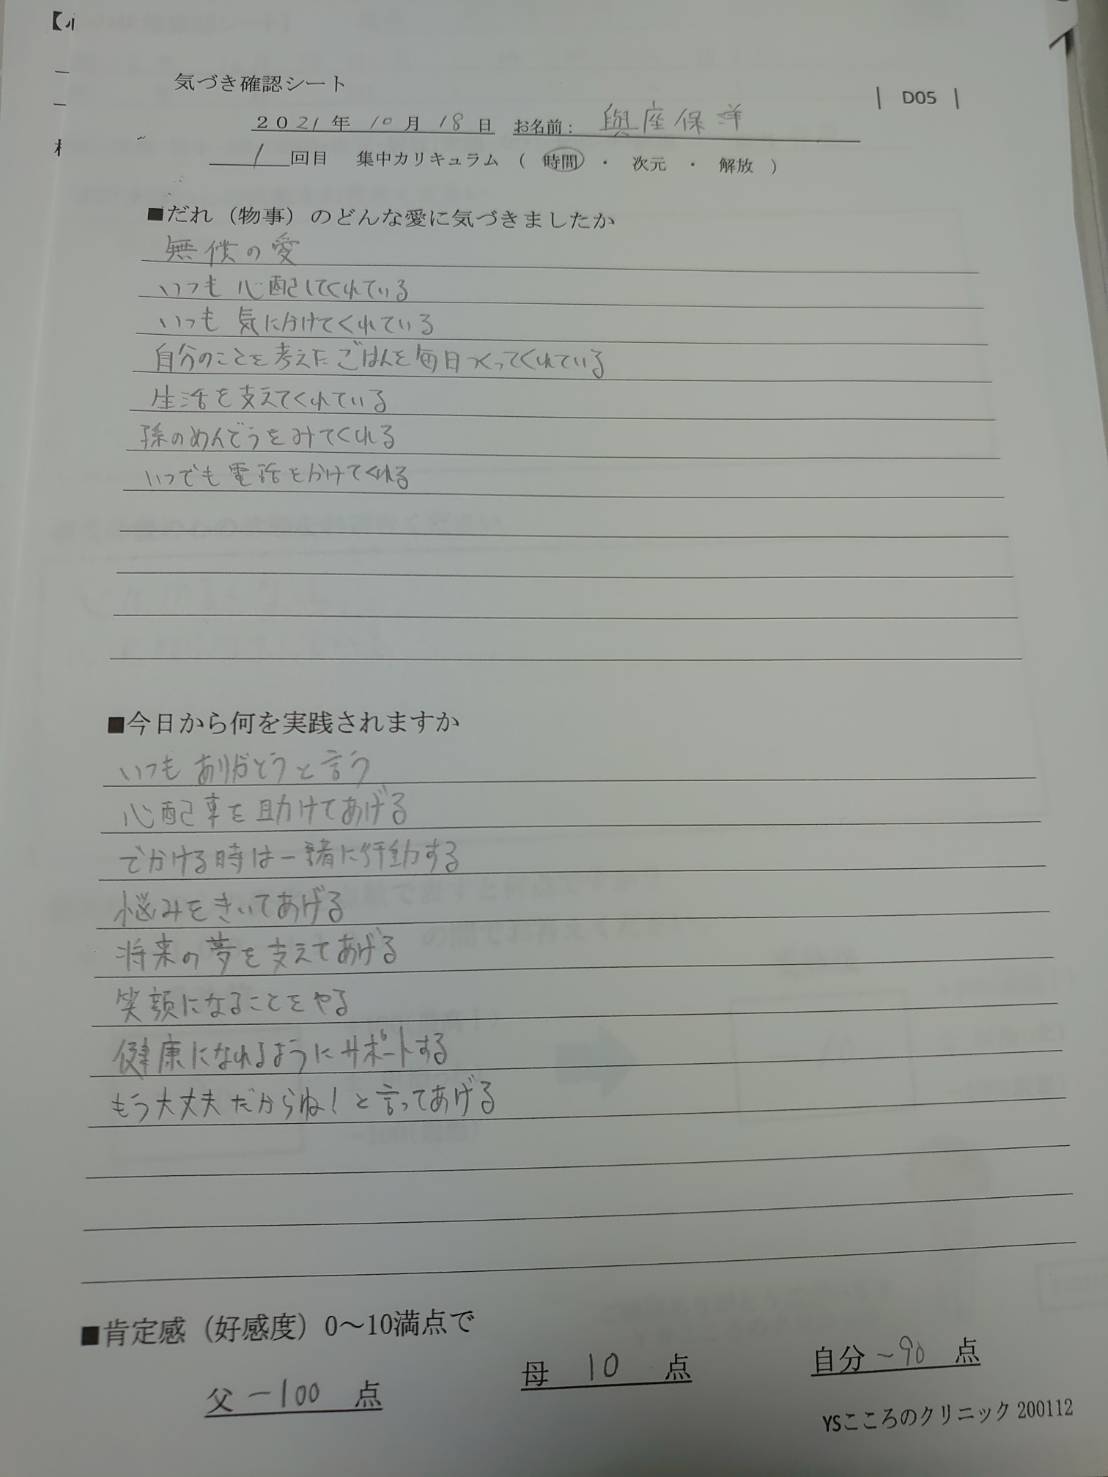 【小
気づき確認シート
| D05 |
2021年 10月 18日 お名前: 與座保洋
1回目 集中カリキュラム ( 時間 ・ 次元 ・ 解放 )
■だれ（物事）のどんな愛に気づきましたか
無償の愛
いつも心配してくれている
いつも気に分けてくれている
自分のことを考えたごはんを毎日つくってくれている
生活を支えてくれている
孫のめんどうをみてくれる
いつでも電話をかけてくれる
■今日から何を実践されますか
いつもありがとうと言う
心配事を助けてあげる
でかける時は一緒に行動する
悩みをきいてあげる
将来の夢を支えてあげる
笑顔になることをやる
健康になれるようにサポートする
もう大丈夫だからね!と言ってあげる
■肯定感（好感度）0～10満点で
父 -100 点
母 10 点
自分 -90 点
YSこころのクリニック 200112